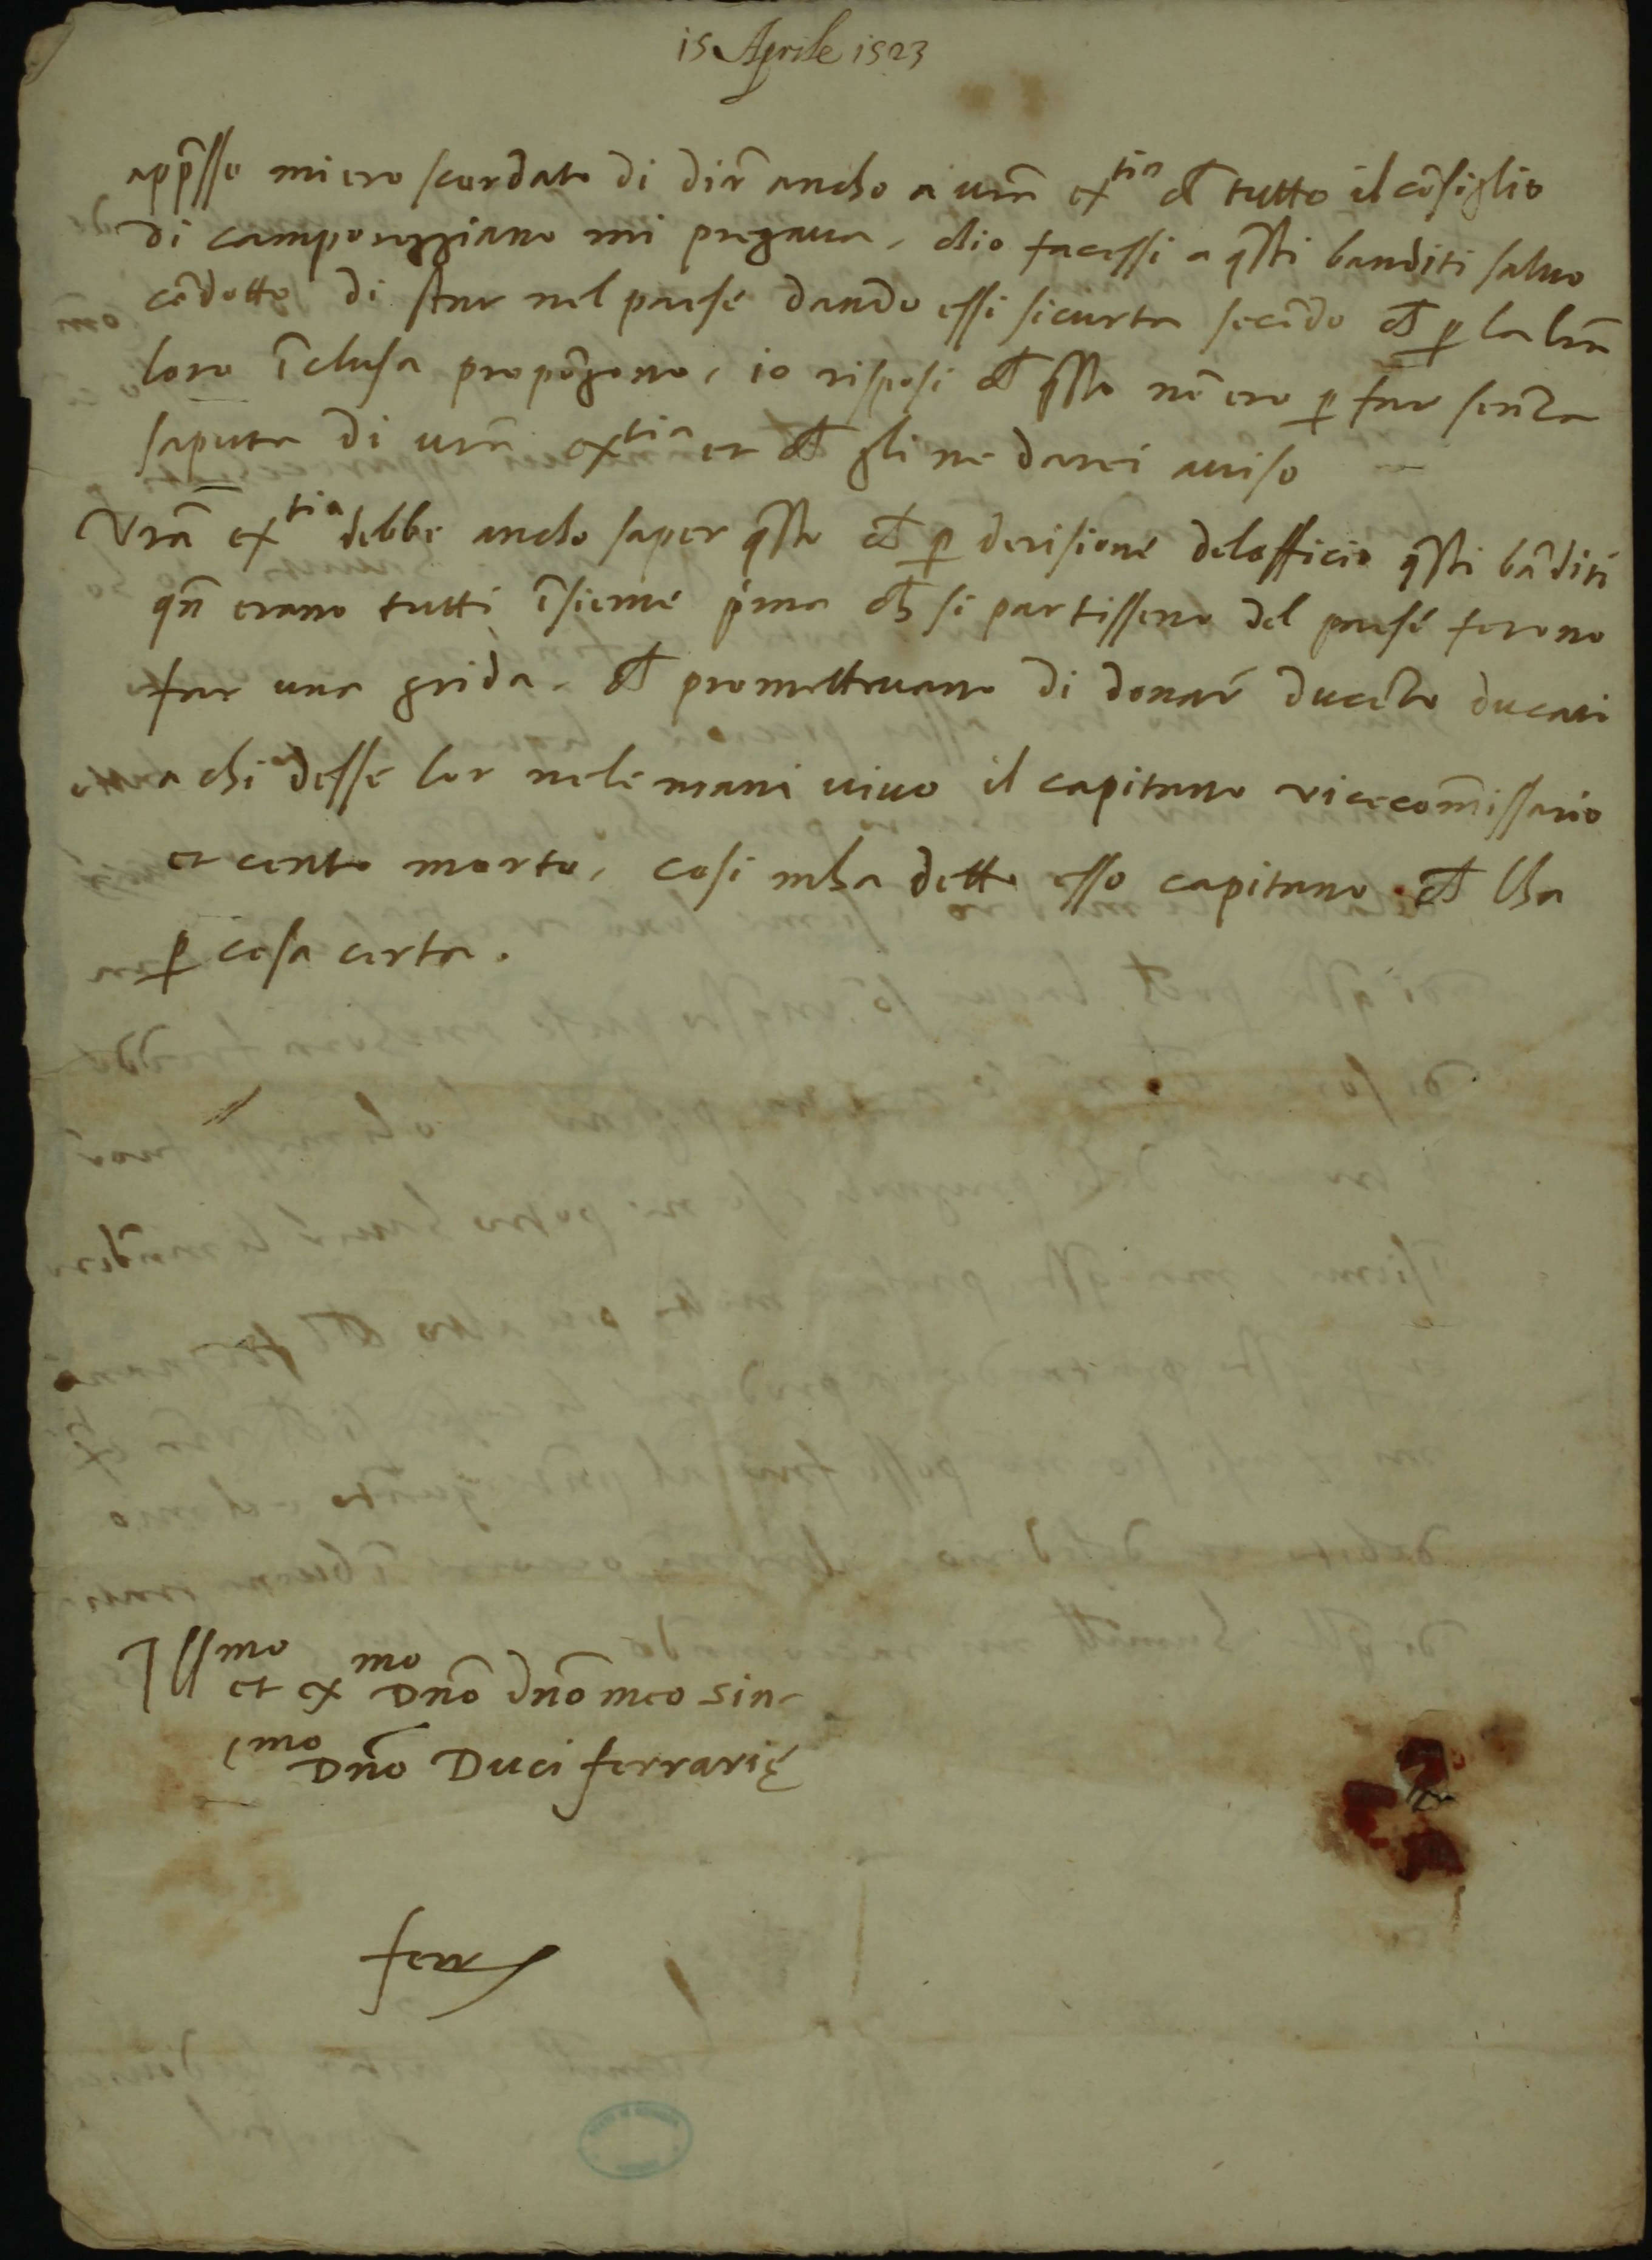 15 Aprile 1523
app̄sso mi ero scordato di dir̄ ancho a vrā ex.tia ch̄ tutto il cōsiglio
di camporeggiano mi pregava, ch io facessi a q̄sti banditi salvo
cōdotto di star nel paese dando essi sicurta secōdo ch̄ p̱ la lrā
loro īclusa propōgono, io risposi ch̄ q̄sto nō ero p̱ far senza
saputa di vrā ex.tia et ch̄ gli ne darei aviso
Vrā ex.tia debbe ancho saper q̄sto ch̄ p̱ derisione del officio q̄sti bāditi
qn̄ erano tutti īsieme p̄ma ch̄ si partisseno del paese ferono
far una grida, ch̄ promettevano di donar̄ ducēto ducati
a chi desse lor ne le mani vivo il capitano vicecom̄issario
et cento morto, cosi m ha detto esso capitano ch̄ l ha
p̱ cosa certa.
Ill.mo et ex.mo Dnō dnō meo sin-
c.mo Dnō Duci ferrarię
ferr